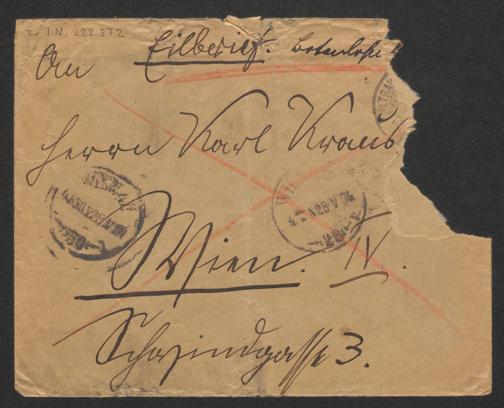 zu I.N. 222.572
Eilbrief.
An
Herrn Karl Kraus
Wien. IV.
Schwindgasse 3.